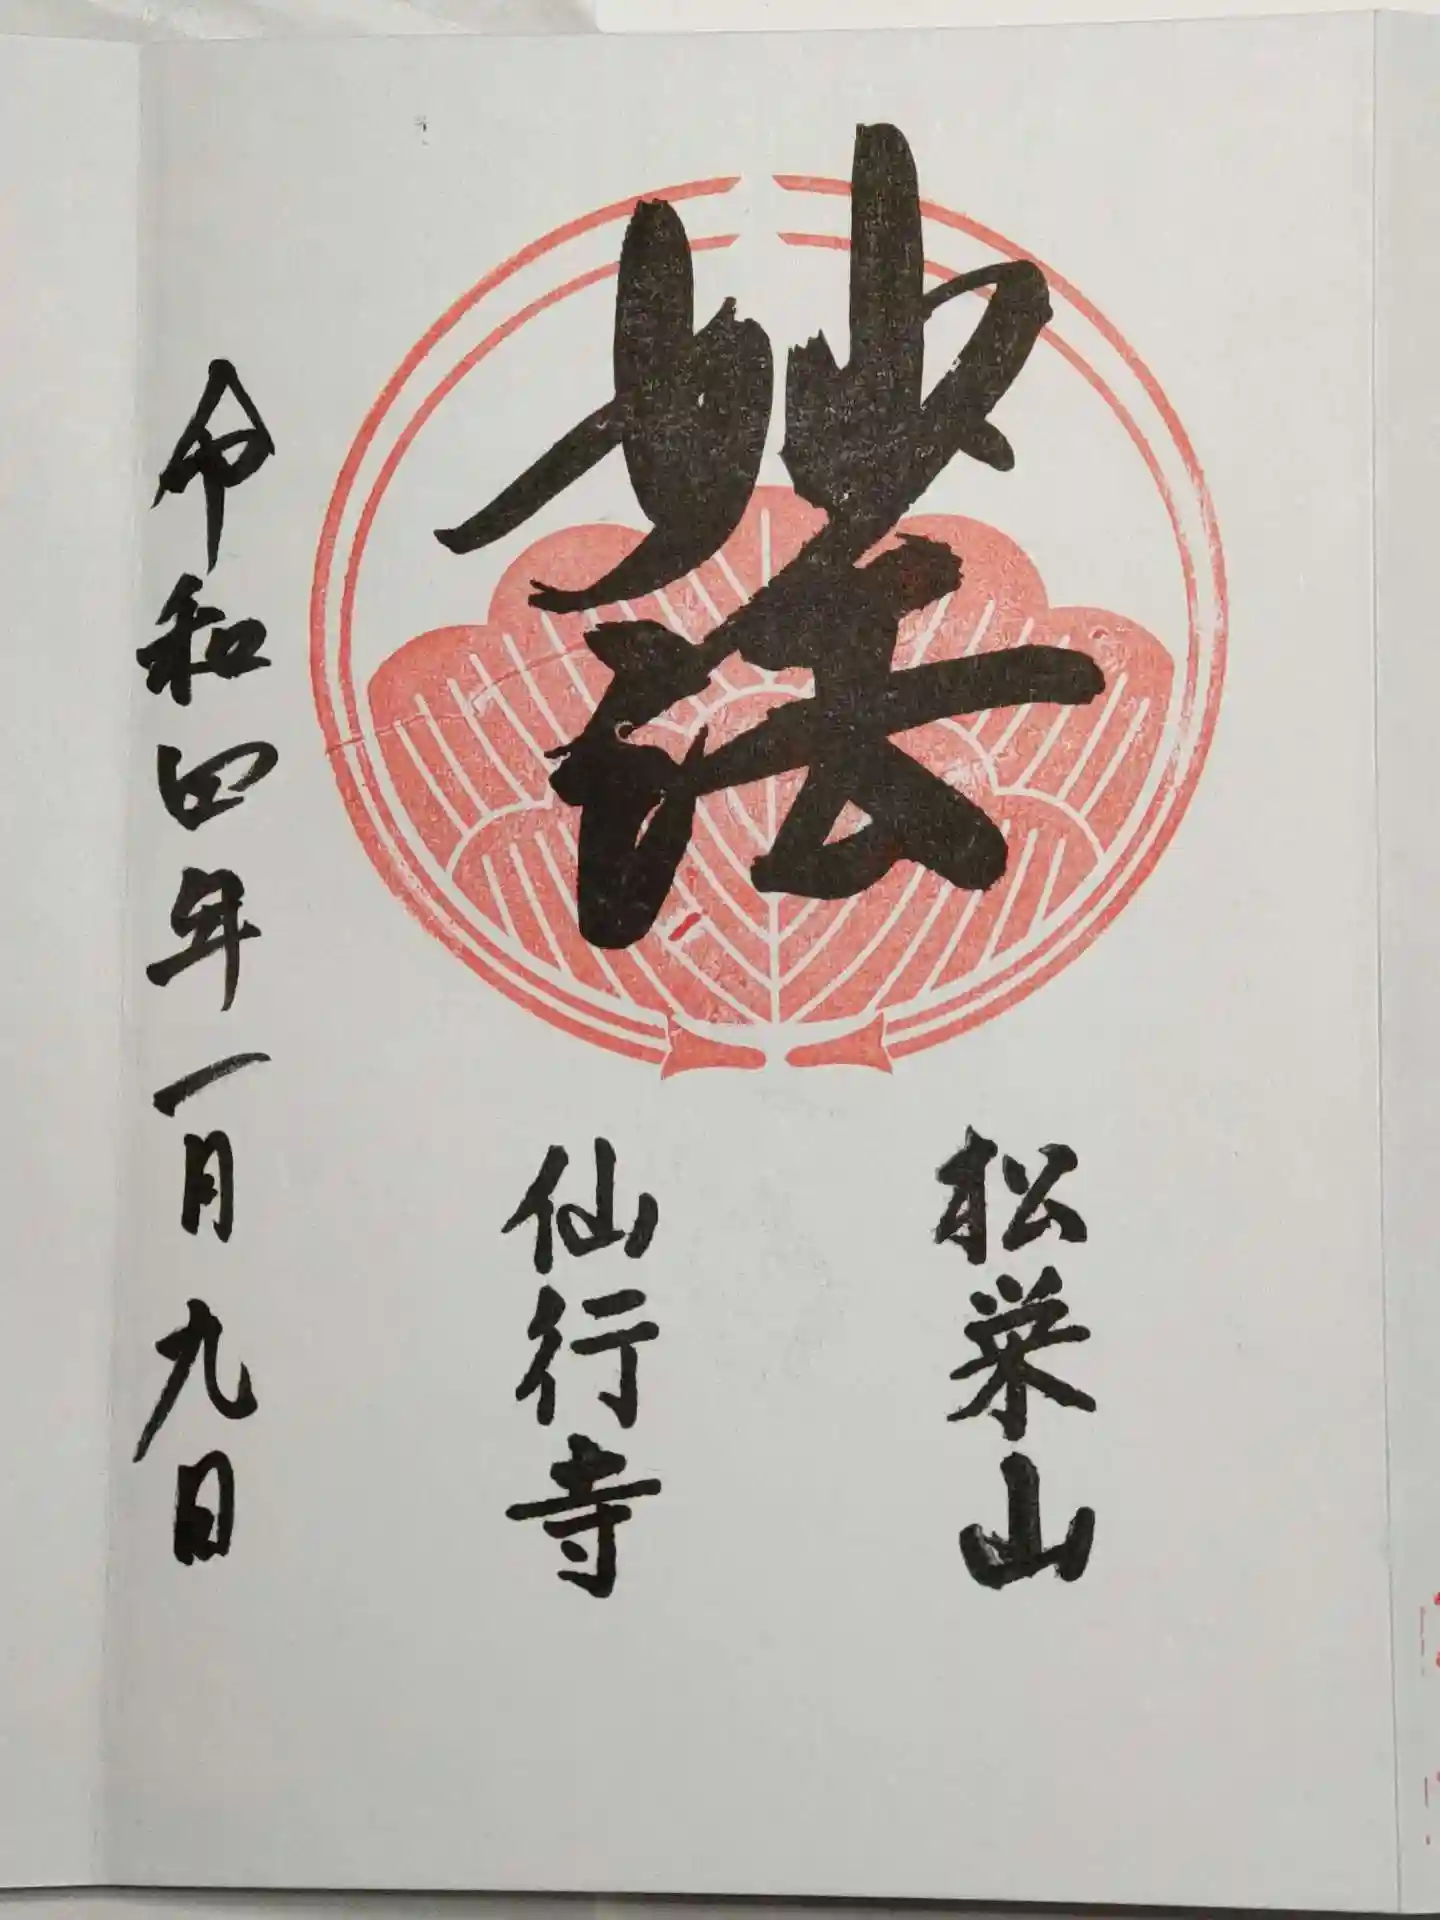 妙法
松栄山
仙行寺
令和四年一月九日